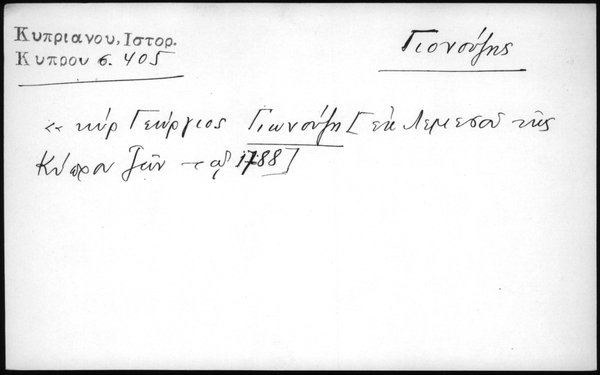 Κυπριανου, Ιστορ.
Κυπρου σ. 405
Γιονούζης
<< κύρ Γεώργιος Γιωνούζη [ ἐκ Λεμεσοῦ τῆς
Κύπρου ζῶν τῷ 1788]